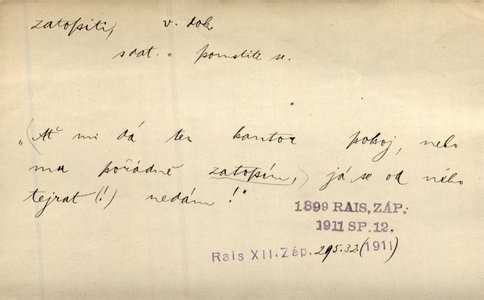 zatopiti, v. dok.
s dat. = pomstíti se.
„(Ať mi dá ten kantor pokoj, nebo
mu pořádně zatopím,) já se od něho
tejrat (!) nedám!"
1899 RAIS, ZÁP.
1911 SP. 12.
Rais XII. Záp. 295.32 (1911)